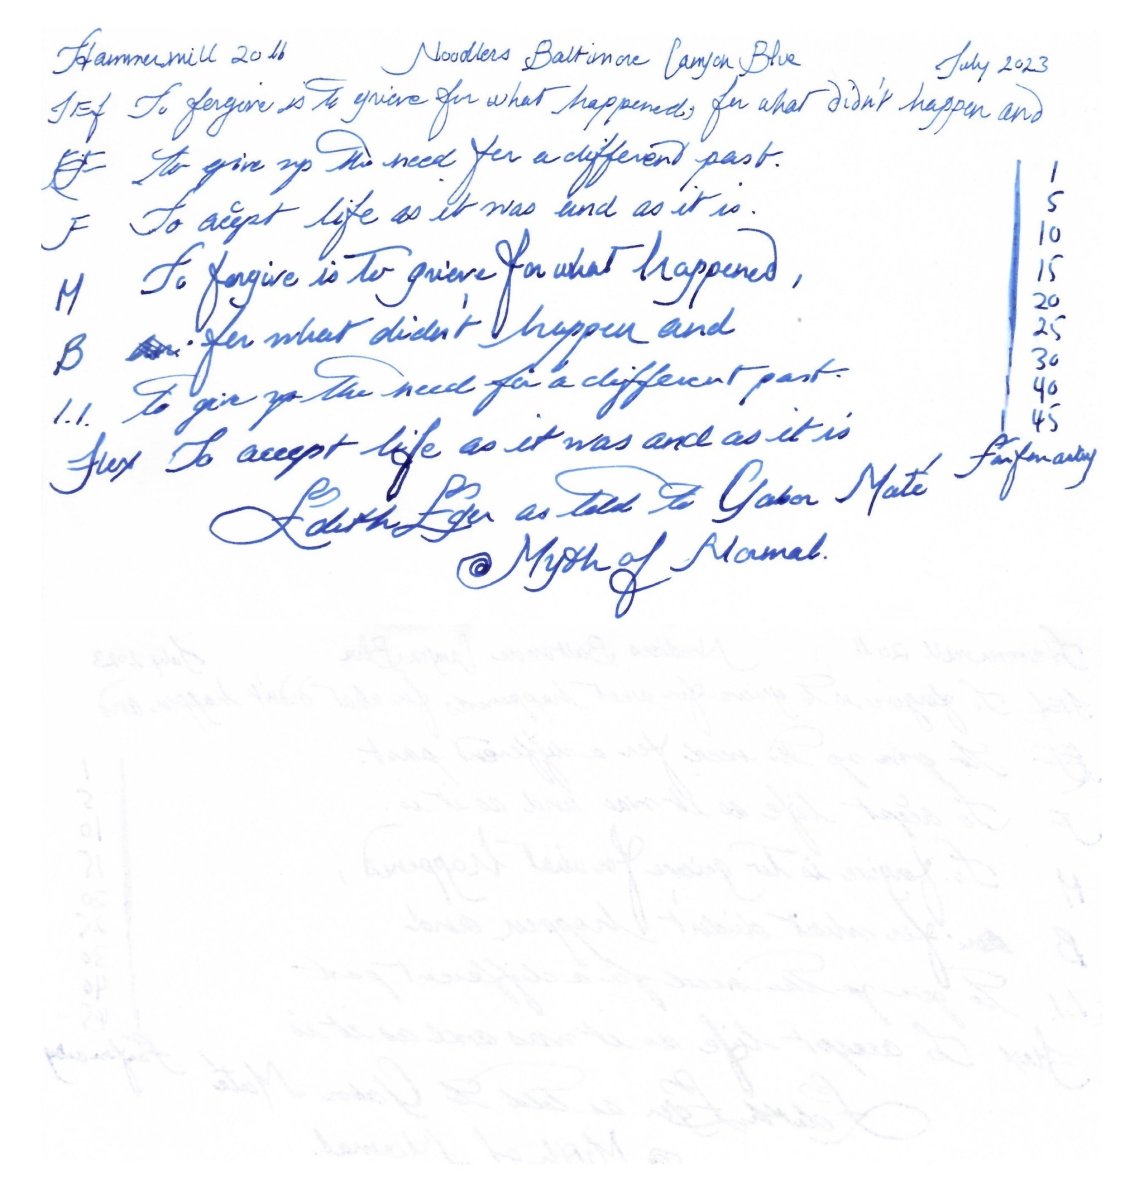 Hammermill 20 lb Noodlers Baltimore Canyon Blue July 2023
JEf To forgive is to grieve for what happened, for what didn't happen and
EF to give up the need for a different past.
F To acept life as it was and as it is.
M To forgive is to grieve for what happened,
B for what didn't happen and
1.1. to give up the need for a different past.
Flex To accept life as it was and as it is
Edith Eger as told to Gabor Maté
@ Myth of Normal.
1
5
10
15
20
25
30
40
45